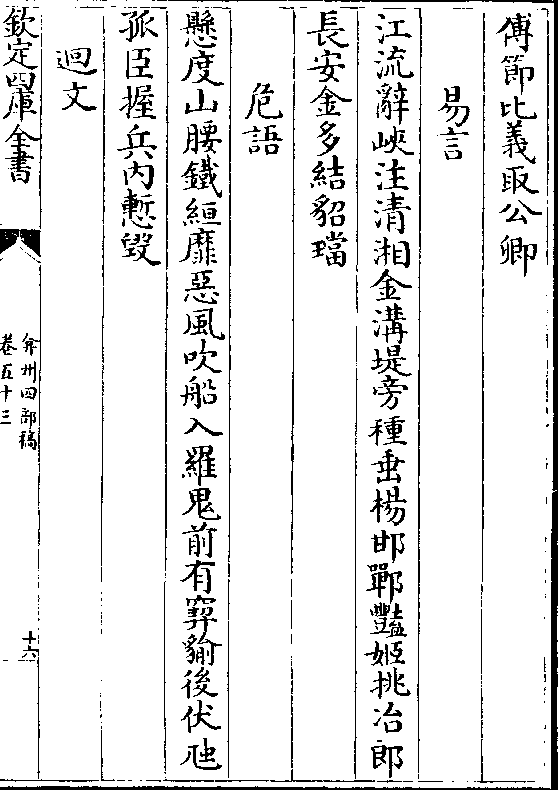 傅節比義取公卿
易言
江流辭峽注清湘金溝堤旁種垂楊邯鄲豔姬挑冶郎
長安金多結貂璫
危語
懸度山腰鐵絙靡惡風吹船入羅鬼前有窫貐後伏虺
孤臣握兵内慙毀
迴文
欽定四庫全書
弇州四部稿
卷五十三
十六